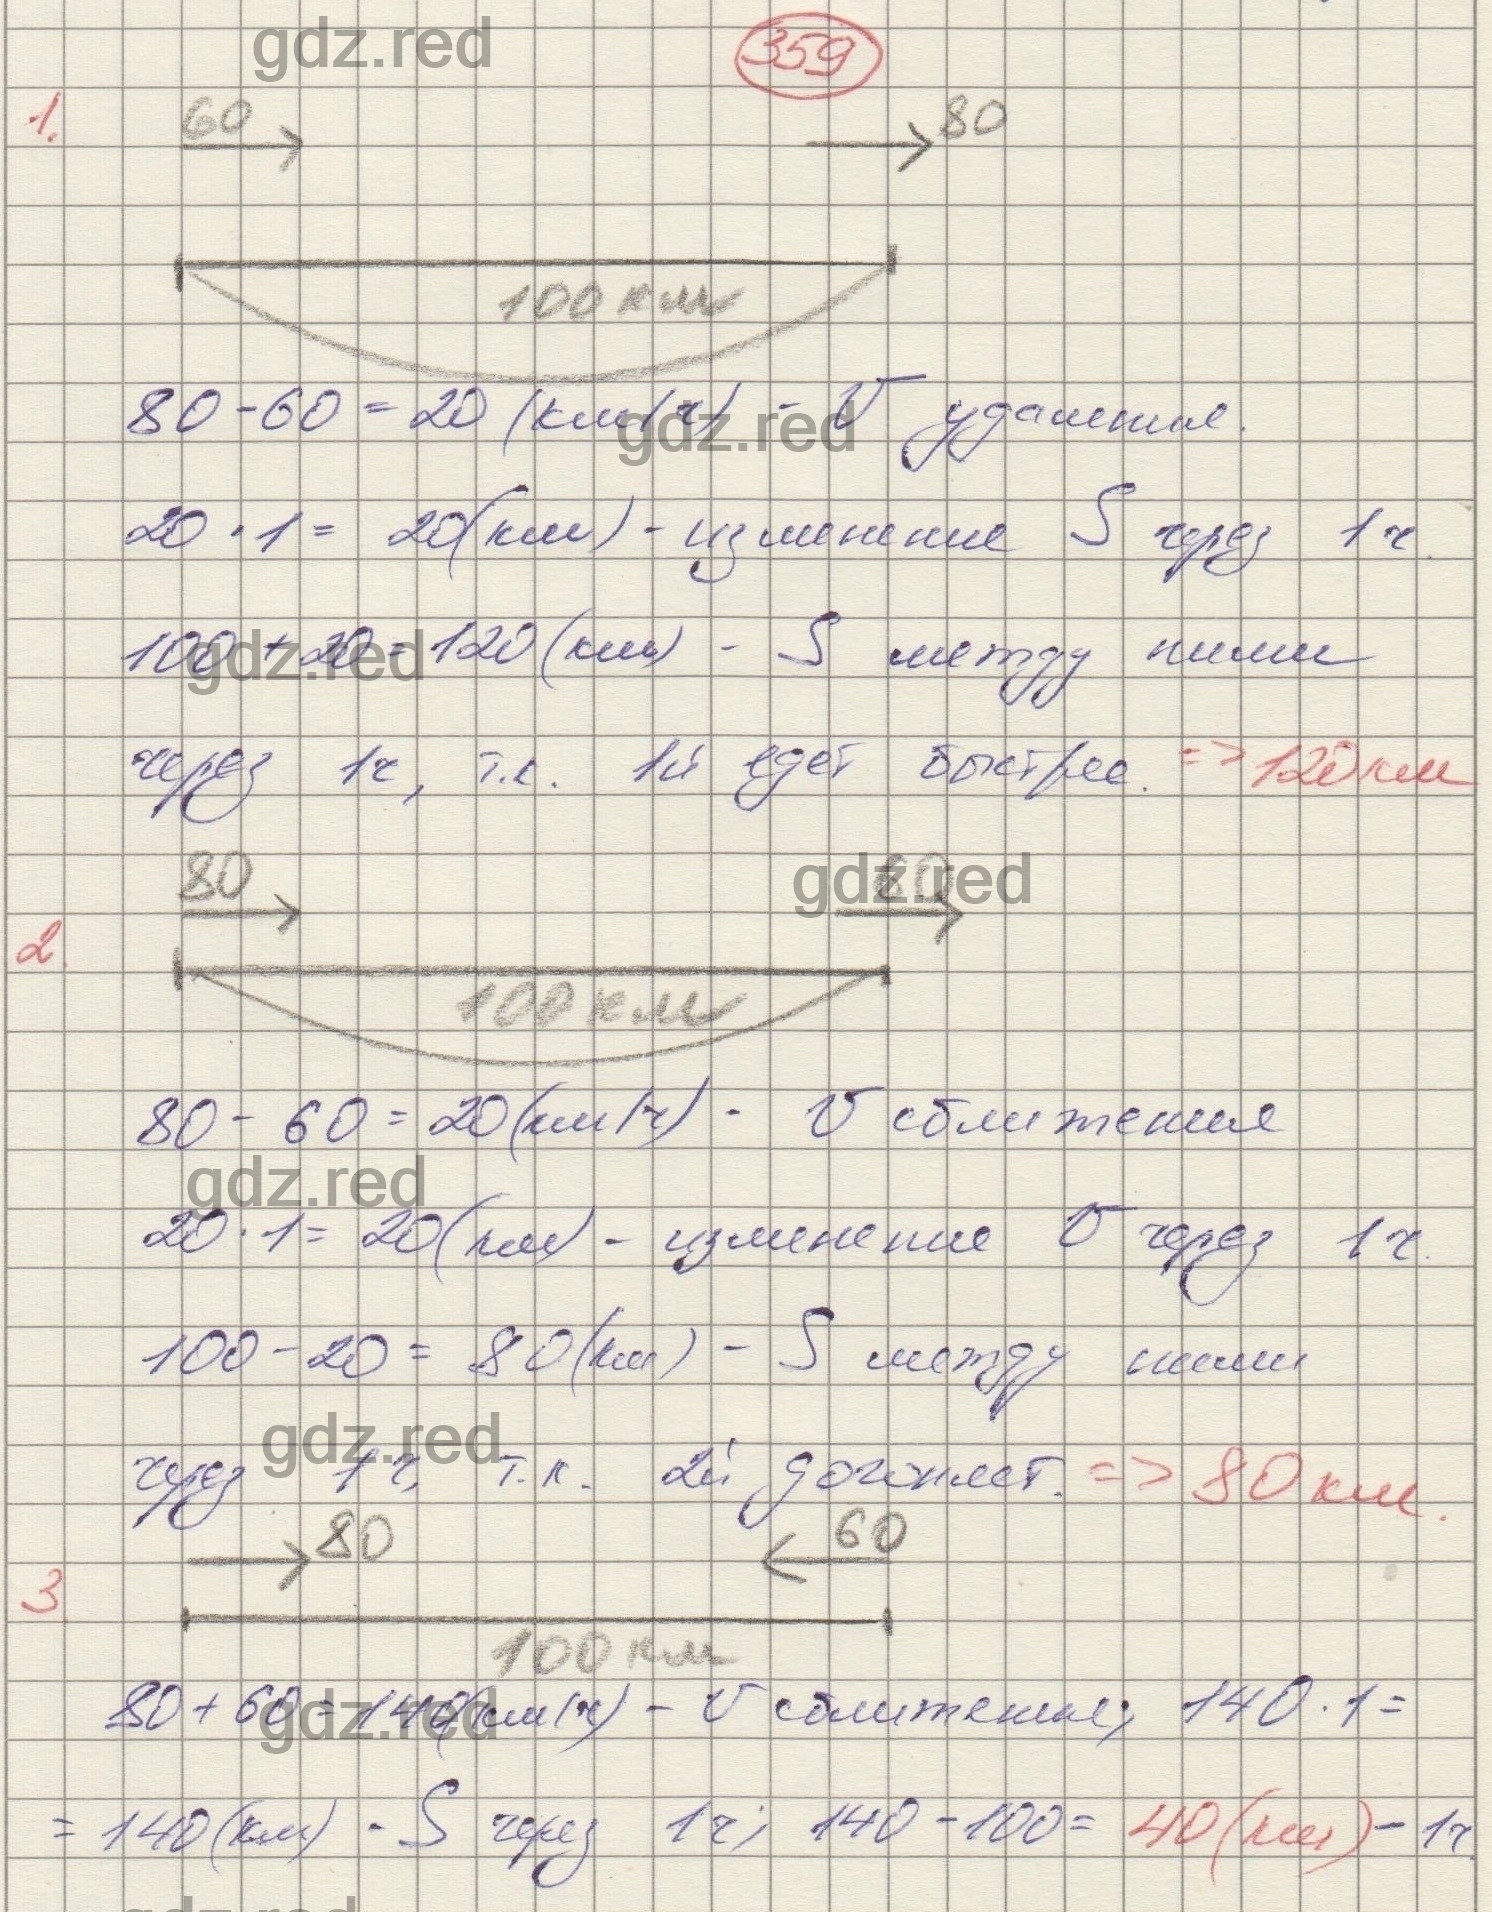 gdz.red
359
1.
60
80
100 км
80 - 60 = 20 (км/ч) - V удаления.
gdz.red
20 · 1 = 20 (км) - изменение S через 1 ч.
100 + 20 = 120 (км) - S между ними
gdz.red
через 1 ч, т.к. 1й едет быстрее. => 120 км
80
80
gdz.red
2.
100 км
80 - 60 = 20 (км/ч) - V сближения
gdz.red
20 · 1 = 20 (км) - изменение V через 1 ч.
100 - 20 = 80 (км) - S между ними
gdz.red
через 1 ч, т.к. 2й догоняет. => 80 км.
80
60
3
100 км
80 + 60 = 140 (км/ч) - V сближения; 140 · 1 =
gdz.red
= 140 (км) - S через 1 ч; 140 - 100 = 40 (км) - 1 ч.
gdz.red